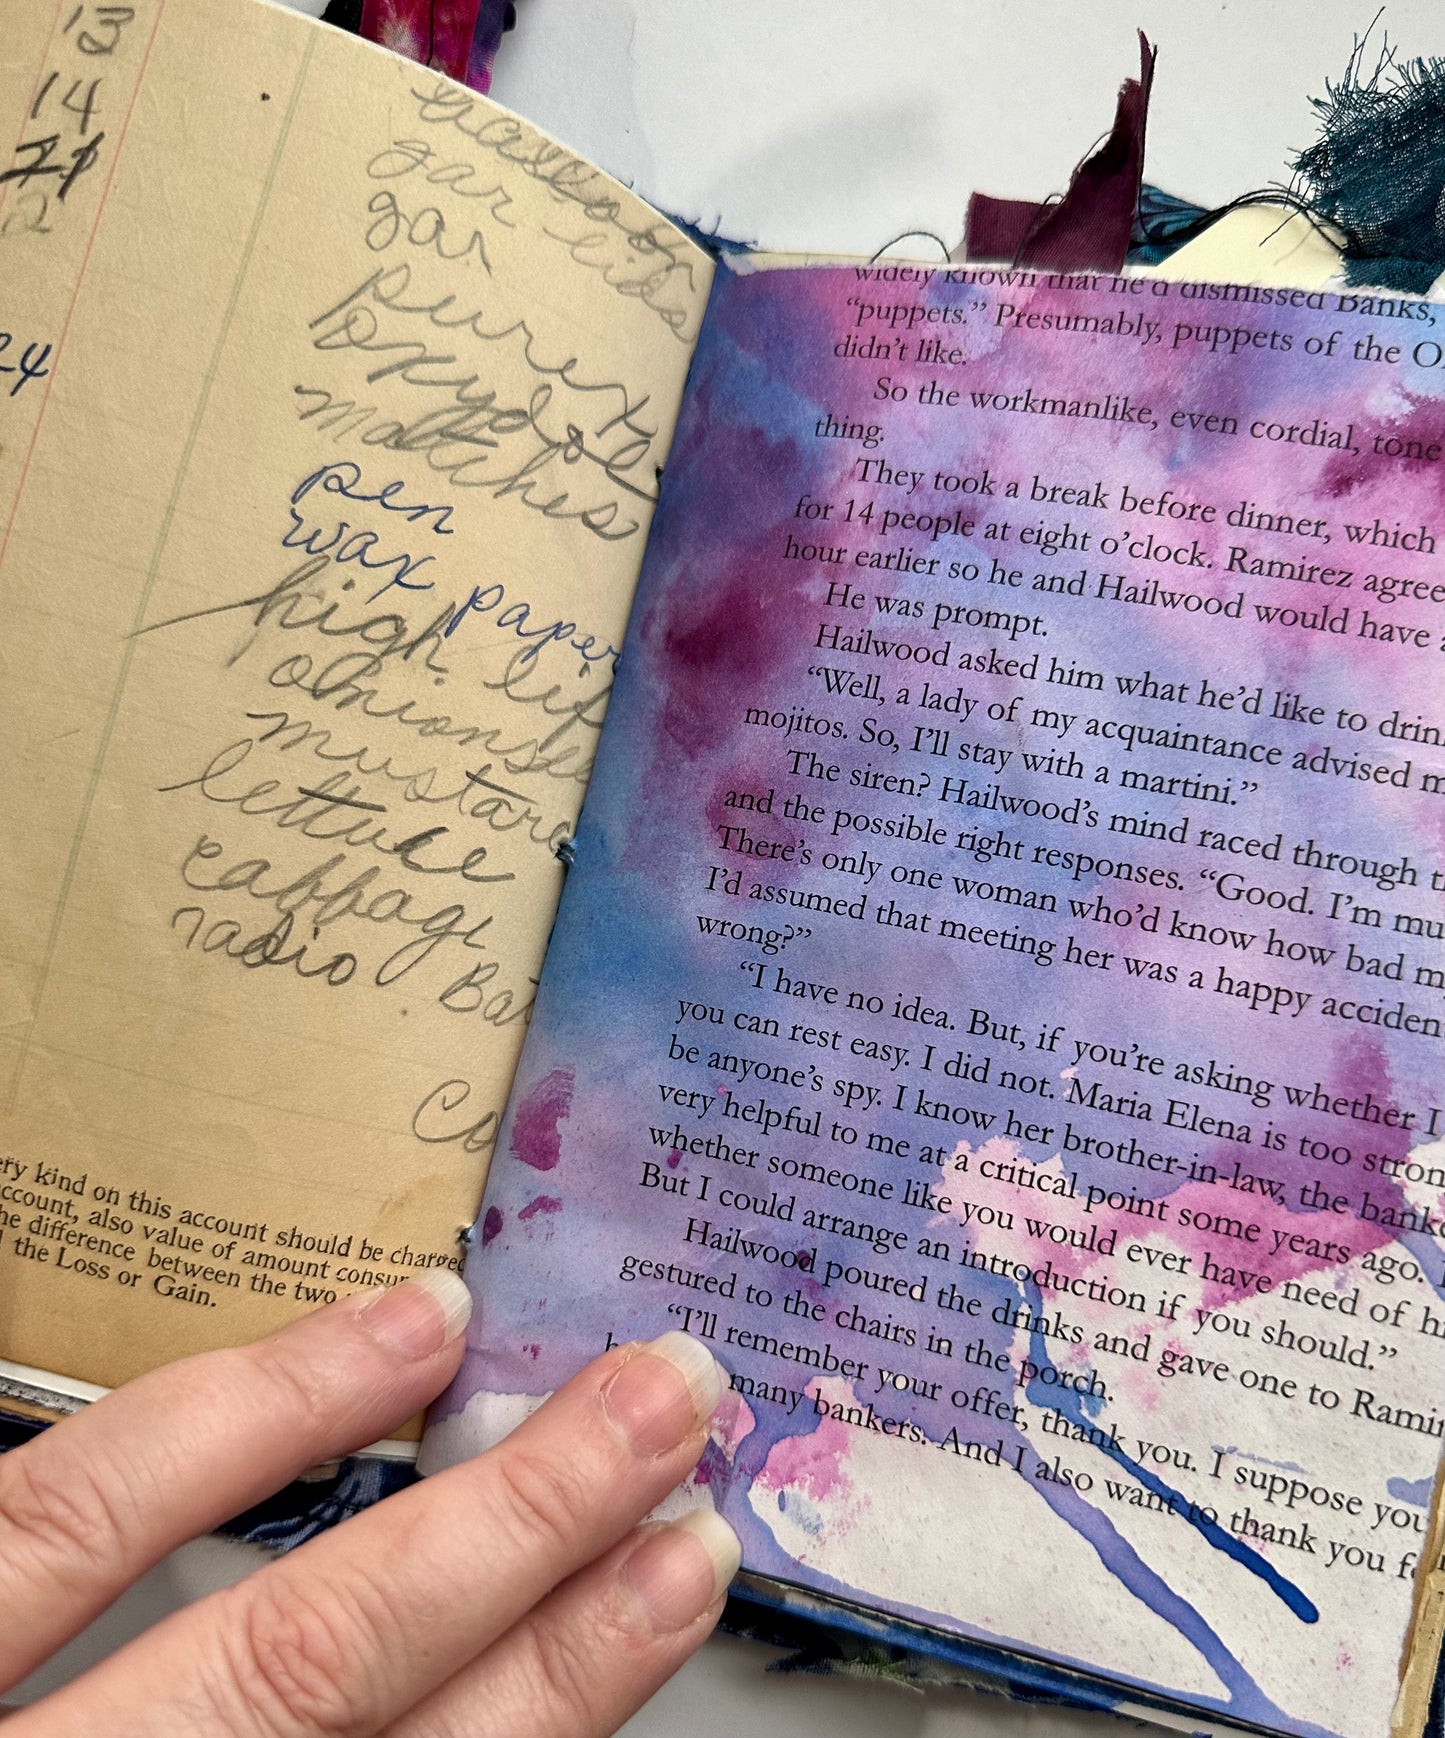 13
14
21
12
24
gar lids
gar
purex
oxydol
matches
pen
wax paper
high lif
onions
mustard
lettuce
cabbage
radio Bat
Co
ery kind on this account should be charged
ccount, also value of amount consu
he difference between the two
the Loss or Gain.
widely known that he'd dismissed Banks,
“puppets.” Presumably, puppets of the O
didn’t like.
So the workmanlike, even cordial, tone
thing.
They took a break before dinner, which
for 14 people at eight o’clock. Ramirez agree
hour earlier so he and Hailwood would have a
He was prompt.
Hailwood asked him what he’d like to drin
“Well, a lady of my acquaintance advised m
mojitos. So, I’ll stay with a martini.”
The siren? Hailwood’s mind raced through t
and the possible right responses. “Good. I’m mu
There’s only one woman who’d know how bad m
I’d assumed that meeting her was a happy acciden
wrong?”
“I have no idea. But, if you’re asking whether I
you can rest easy. I did not. Maria Elena is too stron
be anyone’s spy. I know her brother-in-law, the banke
very helpful to me at a critical point some years ago.
whether someone like you would ever have need of hi
But I could arrange an introduction if you should.”
Hailwood poured the drinks and gave one to Ramir
gestured to the chairs in the porch.
“I’ll remember your offer, thank you. I suppose you
many bankers. And I also want to thank you f